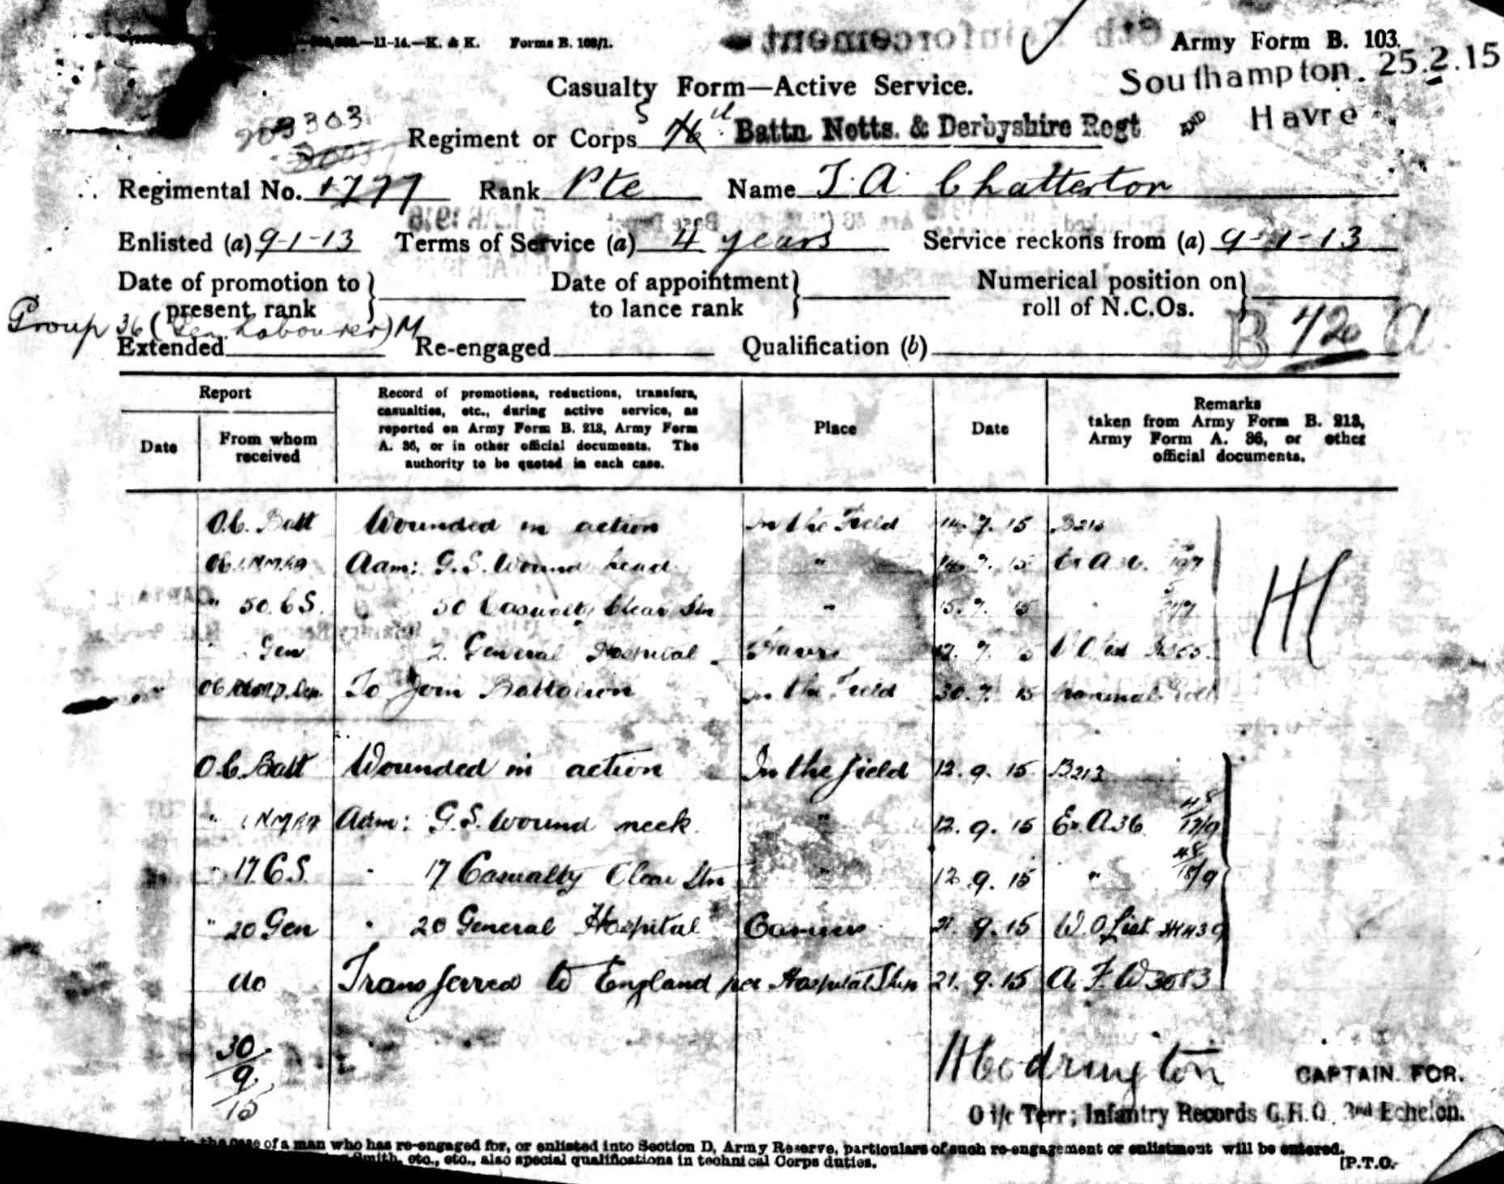 —11-14.—K. & K. Forms B. 103/1.
Army Form B. 103.
Casualty Form—Active Service.
Southampton. 25.2.15
AND Havre
3303
Regiment or Corps Battn. Notts. & Derbyshire Regt
Regimental No. 1777 Rank Pte Name T. A. Chatterton
Enlisted (a) 9-1-13 Terms of Service (a) 4 years Service reckons from (a) 9-1-13
Date of promotion to present rank Date of appointment to lance rank Numerical position on roll of N.C.Os.
Group 36 (Labourer) M B 42 a
Extended Re-engaged Qualification (b)
Report
Date From whom received
Record of promotions, reductions, transfers, casualties, etc., during active service, as reported on Army Form B. 213, Army Form A. 36, or in other official documents. The authority to be quoted in each case.
Place
Date
Remarks taken from Army Form B. 213, Army Form A. 36, or other official documents.
O.C. Batt Wounded in action In the Field 14. 7. 15 B213
Adm: G.S. Wound head " 14. 7. 15
" 50.C.S. 50 Casualty Clear Stn " 15. 7. 15
Gen 2. General Hospital Havre
To Join Battalion In the Field 30. 7. 15 Nominal Roll
H
O.C. Batt Wounded in action In the field 12. 9. 15 B213
" Adm: G.S. Wound neck " 12. 9. 15 Ex. A36 17/9
" 17 C.S. " 17 Casualty Clear Stn " 12. 9. 15 " 18/9
" 20 Gen " 20 General Hospital Camiers 21. 9. 15 W.O List H1439
do Transferred to England per Hospital Ship 21. 9. 15 A.F.W3083
30/9/15
HCodrington CAPTAIN. FOR.
O i/c Terr; Infantry Records G.H.Q. 3rd Echelon.
In the case of a man who has re-engaged for, or enlisted into Section D, Army Reserve, particulars of such re-engagement or enlistment will be entered.
Smith, etc., etc., also special qualifications in technical Corps duties.
[P.T.O.